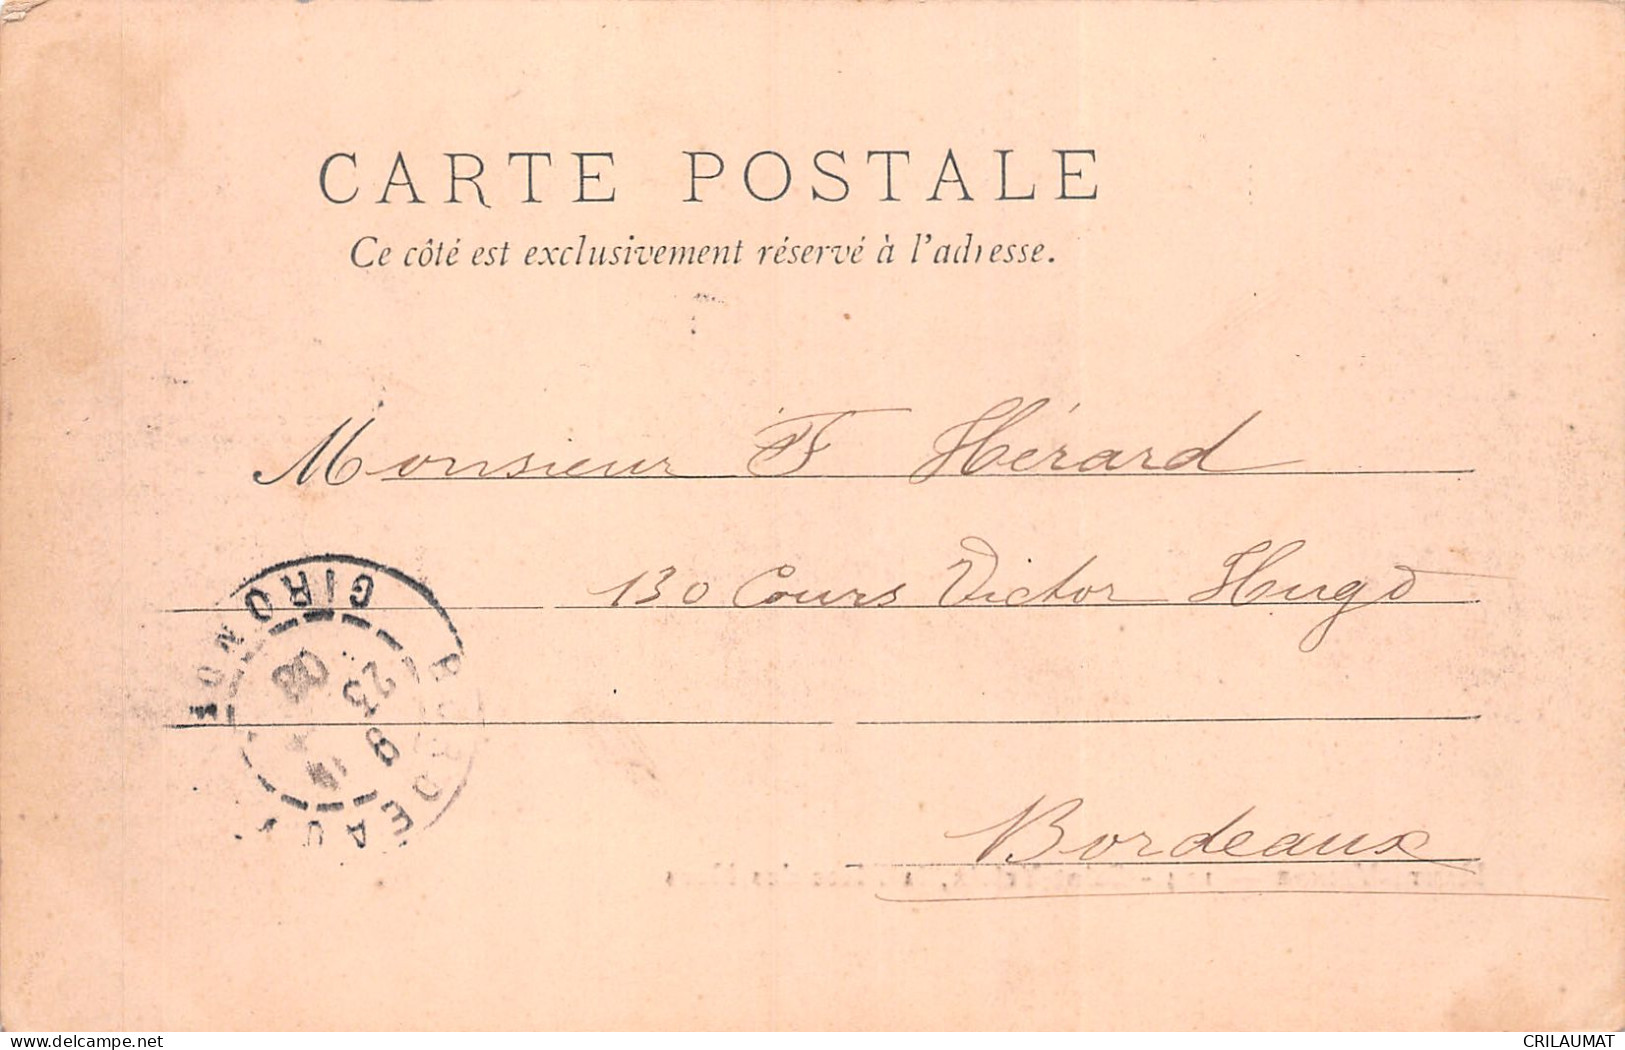 CARTE POSTALE
Ce côté est exclusivement réservé à l'adresse.
Monsieur F Hérard
130 Cours Victor Hugo
Bordeaux
BORDEAUX
GIRONDE
23
03
delcampe.net
CRILAUMAT